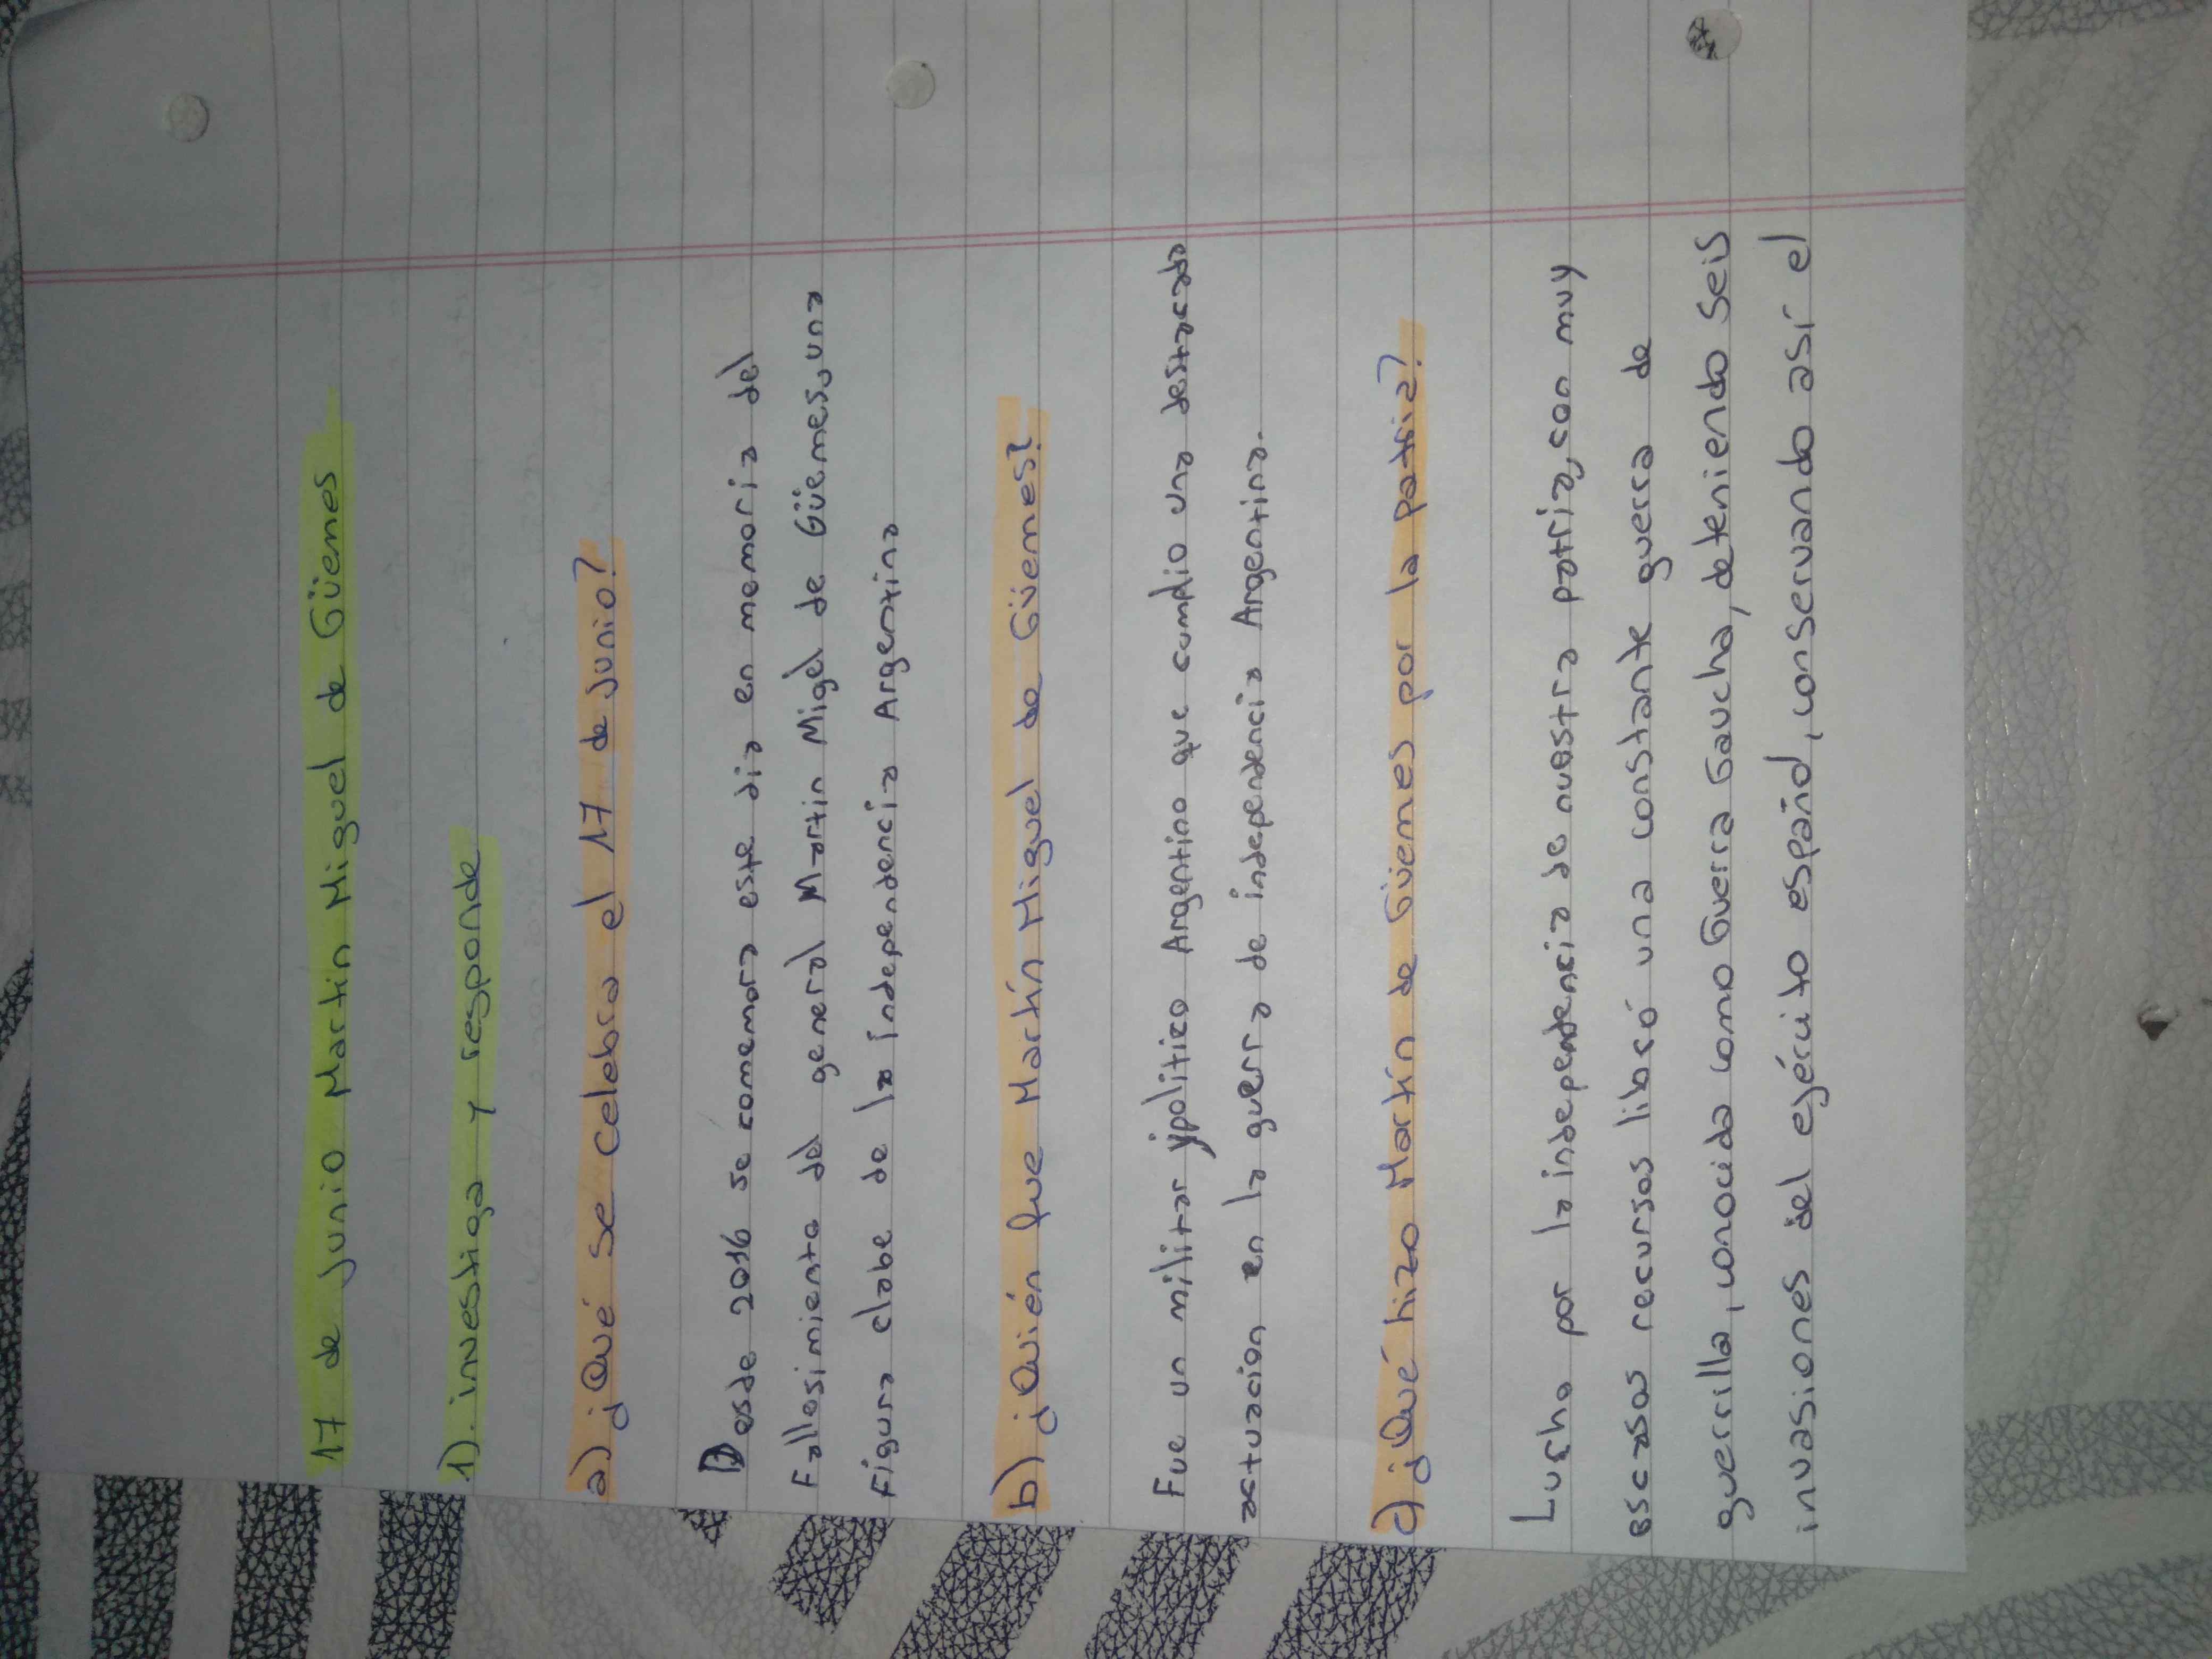 17 de Junio Martín Miguel de Güemes
1). investiga y responde
a) ¿Qué se celebra el 17 de Junio?
Desde 2016 se comemora este dia en memoria del
Fallesimiento del general Martin Migel de Güemes, una
Figura clabe de la independencia Argentina
b) ¿Quién fue Martín Miguel de Güemes?
Fue un militar y politico Argentino que cumplio una destacada
actuacion en la guerra de independencia Argentina.
c) ¿Qué hizo Martín de Güemes por la patria?
Lucho por la independencia de nuestra patria, con muy
escasos recursos libró una constante guerra de
guerrilla, conocida como Guerra Gaucha, deteniendo seis
invasiones del ejército español, conservando así el